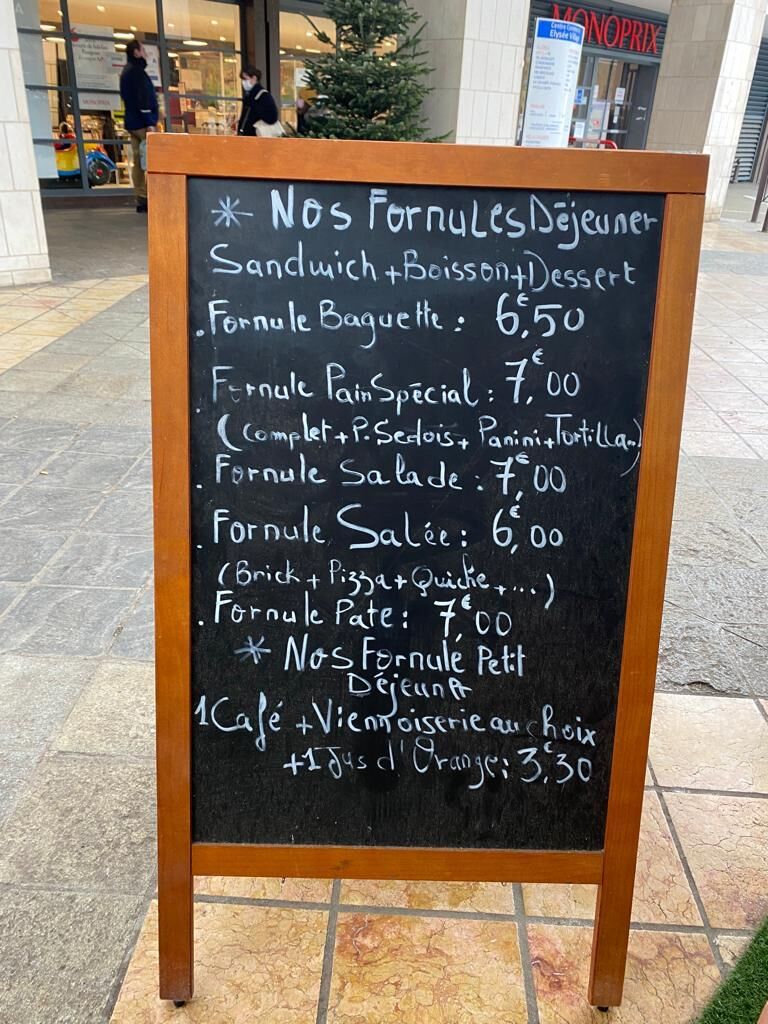 MONOPRIX
Centre Commercial
Elysée Village
MONOPRIX
* Nos Fornules Déjeuner
Sandwich + Boisson + Dessert
. Fornule Baguette : 6,€50
. Fornule Pain Spécial : 7,€00
(Complet + P. Sedois + Panini + Tortilla...)
. Fornule Salade : 7,€00
. Fornule Salée : 6,€00
(Brick + Pizza + Quiche + ...)
. Fornule Pate : 7,€00
* Nos Fornule Petit
Déjeuner
1 Café + Viennoiserie au choix
+ 1 Jus d'Orange : 3,€30